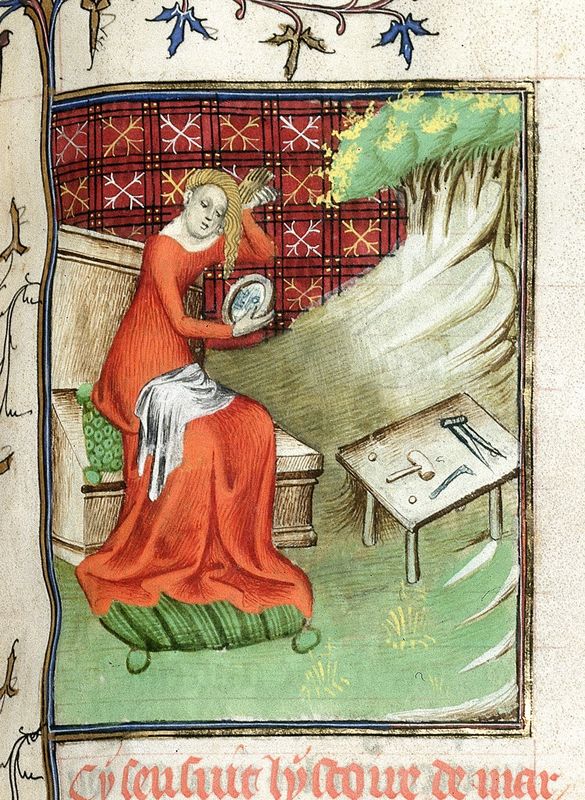 Cy sensuit lystoire de mar